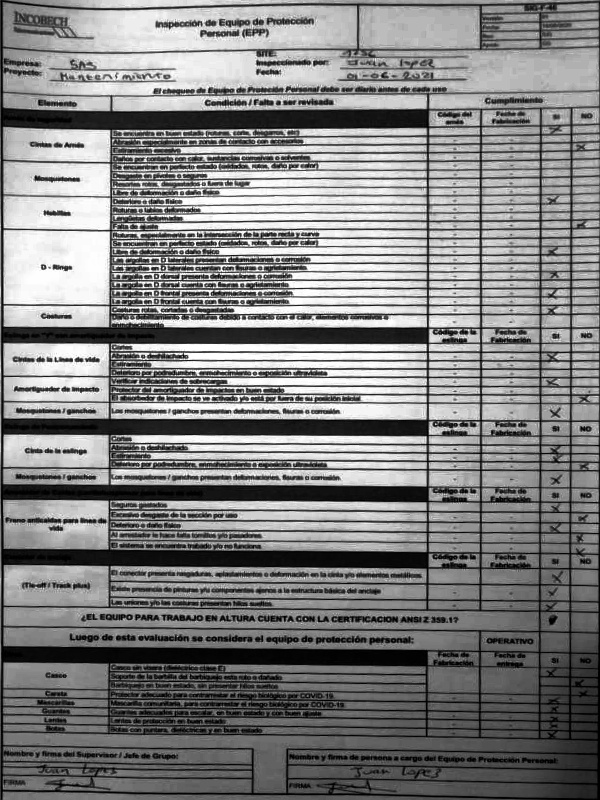 INCOBECH
Inspección de Equipo de Protección
Personal (EPP)
SIG-F-46
Empresa: SAS
SITE:
Inspeccionado por: Juan lopez
Proyecto: Mantenimiento
Fecha: 01-06-2021
El chequeo de Equipo de Protección Personal debe ser diario antes de cada uso
Elemento Condición / Falta a ser revisada Cumplimiento
Código del arnés Fecha de Fabricación SI NO
Cintas de Arnés
Se encuentra en buen estado (roturas, corte, desgarros, etc)
Abrasión especialmente en zonas de contacto con accesorios
Estiramiento excesivo
Daños por contacto con calor, sustancias corrosivas o solventes
Mosquetones
Se encuentran en perfecto estado (oxidados, rotos, daño por calor)
Desgaste en pivotes o seguros
Resortes rotos, desgastados o fuera de lugar
Hebillas
Libre de deformación o daño físico
Deterioro o daño físico
Roturas o labios deformados
Lengüetas deformadas
Falta de ajuste
D - Rings
Roturas, especialmente en la intersección de la parte recta y curva
Se encuentran en perfecto estado (oxidados, rotos, daño por calor)
Libre de deformación o daño físico
Las argollas en D laterales presentan deformaciones o corrosión
Las argollas en D laterales cuentan con fisuras o agrietamiento.
La argolla en D dorsal presenta deformaciones o corrosión
La argolla en D dorsal cuenta con fisuras o agrietamiento.
La argolla en D frontal presenta deformaciones o corrosión
La argolla en D frontal cuenta con fisuras o agrietamiento.
Costuras
Costuras rotas, cortadas o desgastadas
Daño o debilitamiento de costuras debido a contacto con el calor, elementos corrosivos o
enmohecimiento
Código de la eslinga Fecha de Fabricación SI NO
Cintas de la Línea de vida
Cortes
Abrasión o deshilachado
Estiramiento
Deterioro por podredumbre, enmohecimiento o exposición ultravioleta
Amortiguador de impacto
Verificar indicaciones de sobrecargas
Protector del amortiguador de impactos en buen estado
El absorbedor de impacto se ve activado y/o está por fuera de su posición inicial.
Mosquetones / ganchos
Los mosquetones / ganchos presentan deformaciones, fisuras o corrosión.
Código de la eslinga Fecha de Fabricación SI NO
Cinta de la eslinga
Cortes
Abrasión o deshilachado
Estiramiento
Deterioro por podredumbre, enmohecimiento o exposición ultravioleta
Mosquetones / ganchos
Los mosquetones / ganchos presentan deformaciones, fisuras o corrosión.
Código de la eslinga Fecha de Fabricación SI NO
Freno anticaídas para línea de
vida
Seguros gastados
Excesivo desgaste de la sección por uso
Deterioro o daño físico
Al arrestador le hace falta tornillos y/o pasadores.
El sistema se encuentra trabado y/o no funciona.
Código de la eslinga Fecha de Fabricación SI NO
(Tie-off / Track plus)
El conector presenta rasgaduras, aplastamientos o deformación en la cinta y/o elementos metálicos.
Existe presencia de pinturas y/o componentes ajenos a la estructura básica del anclaje
Las uniones y/o las costuras presentan hilos sueltos.
¿EL EQUIPO PARA TRABAJO EN ALTURA CUENTA CON LA CERTIFICACION ANSI Z 359.1?
Luego de esta evaluación se considera el equipo de protección personal: OPERATIVO
Fecha de Fabricación Fecha de entrega SI NO
Casco
Casco sin visera (dieléctrico clase E)
Soporte de la barbilla del barbiquejo esta roto o dañado
Barbiquejo en buen estado, sin presentar hilos sueltos
Careta Protector adecuado para contrarrestar el riesgo biológico por COVID-19.
Mascarillas Mascarilla comunitaria, para contrarrestar el riesgo biológico por COVID-19.
Guantes Guantes adecuados para escalar, en buen estado y con buen ajuste
Lentes Lentes de protección en buen estado
Botas Botas con puntera, dieléctricas y en buen estado
Nombre y firma del Supervisor / Jefe de Grupo:
Juan Lopez
FIRMA
Nombre y firma de persona a cargo del Equipo de Protección Personal:
Juan Lopez
FIRMA